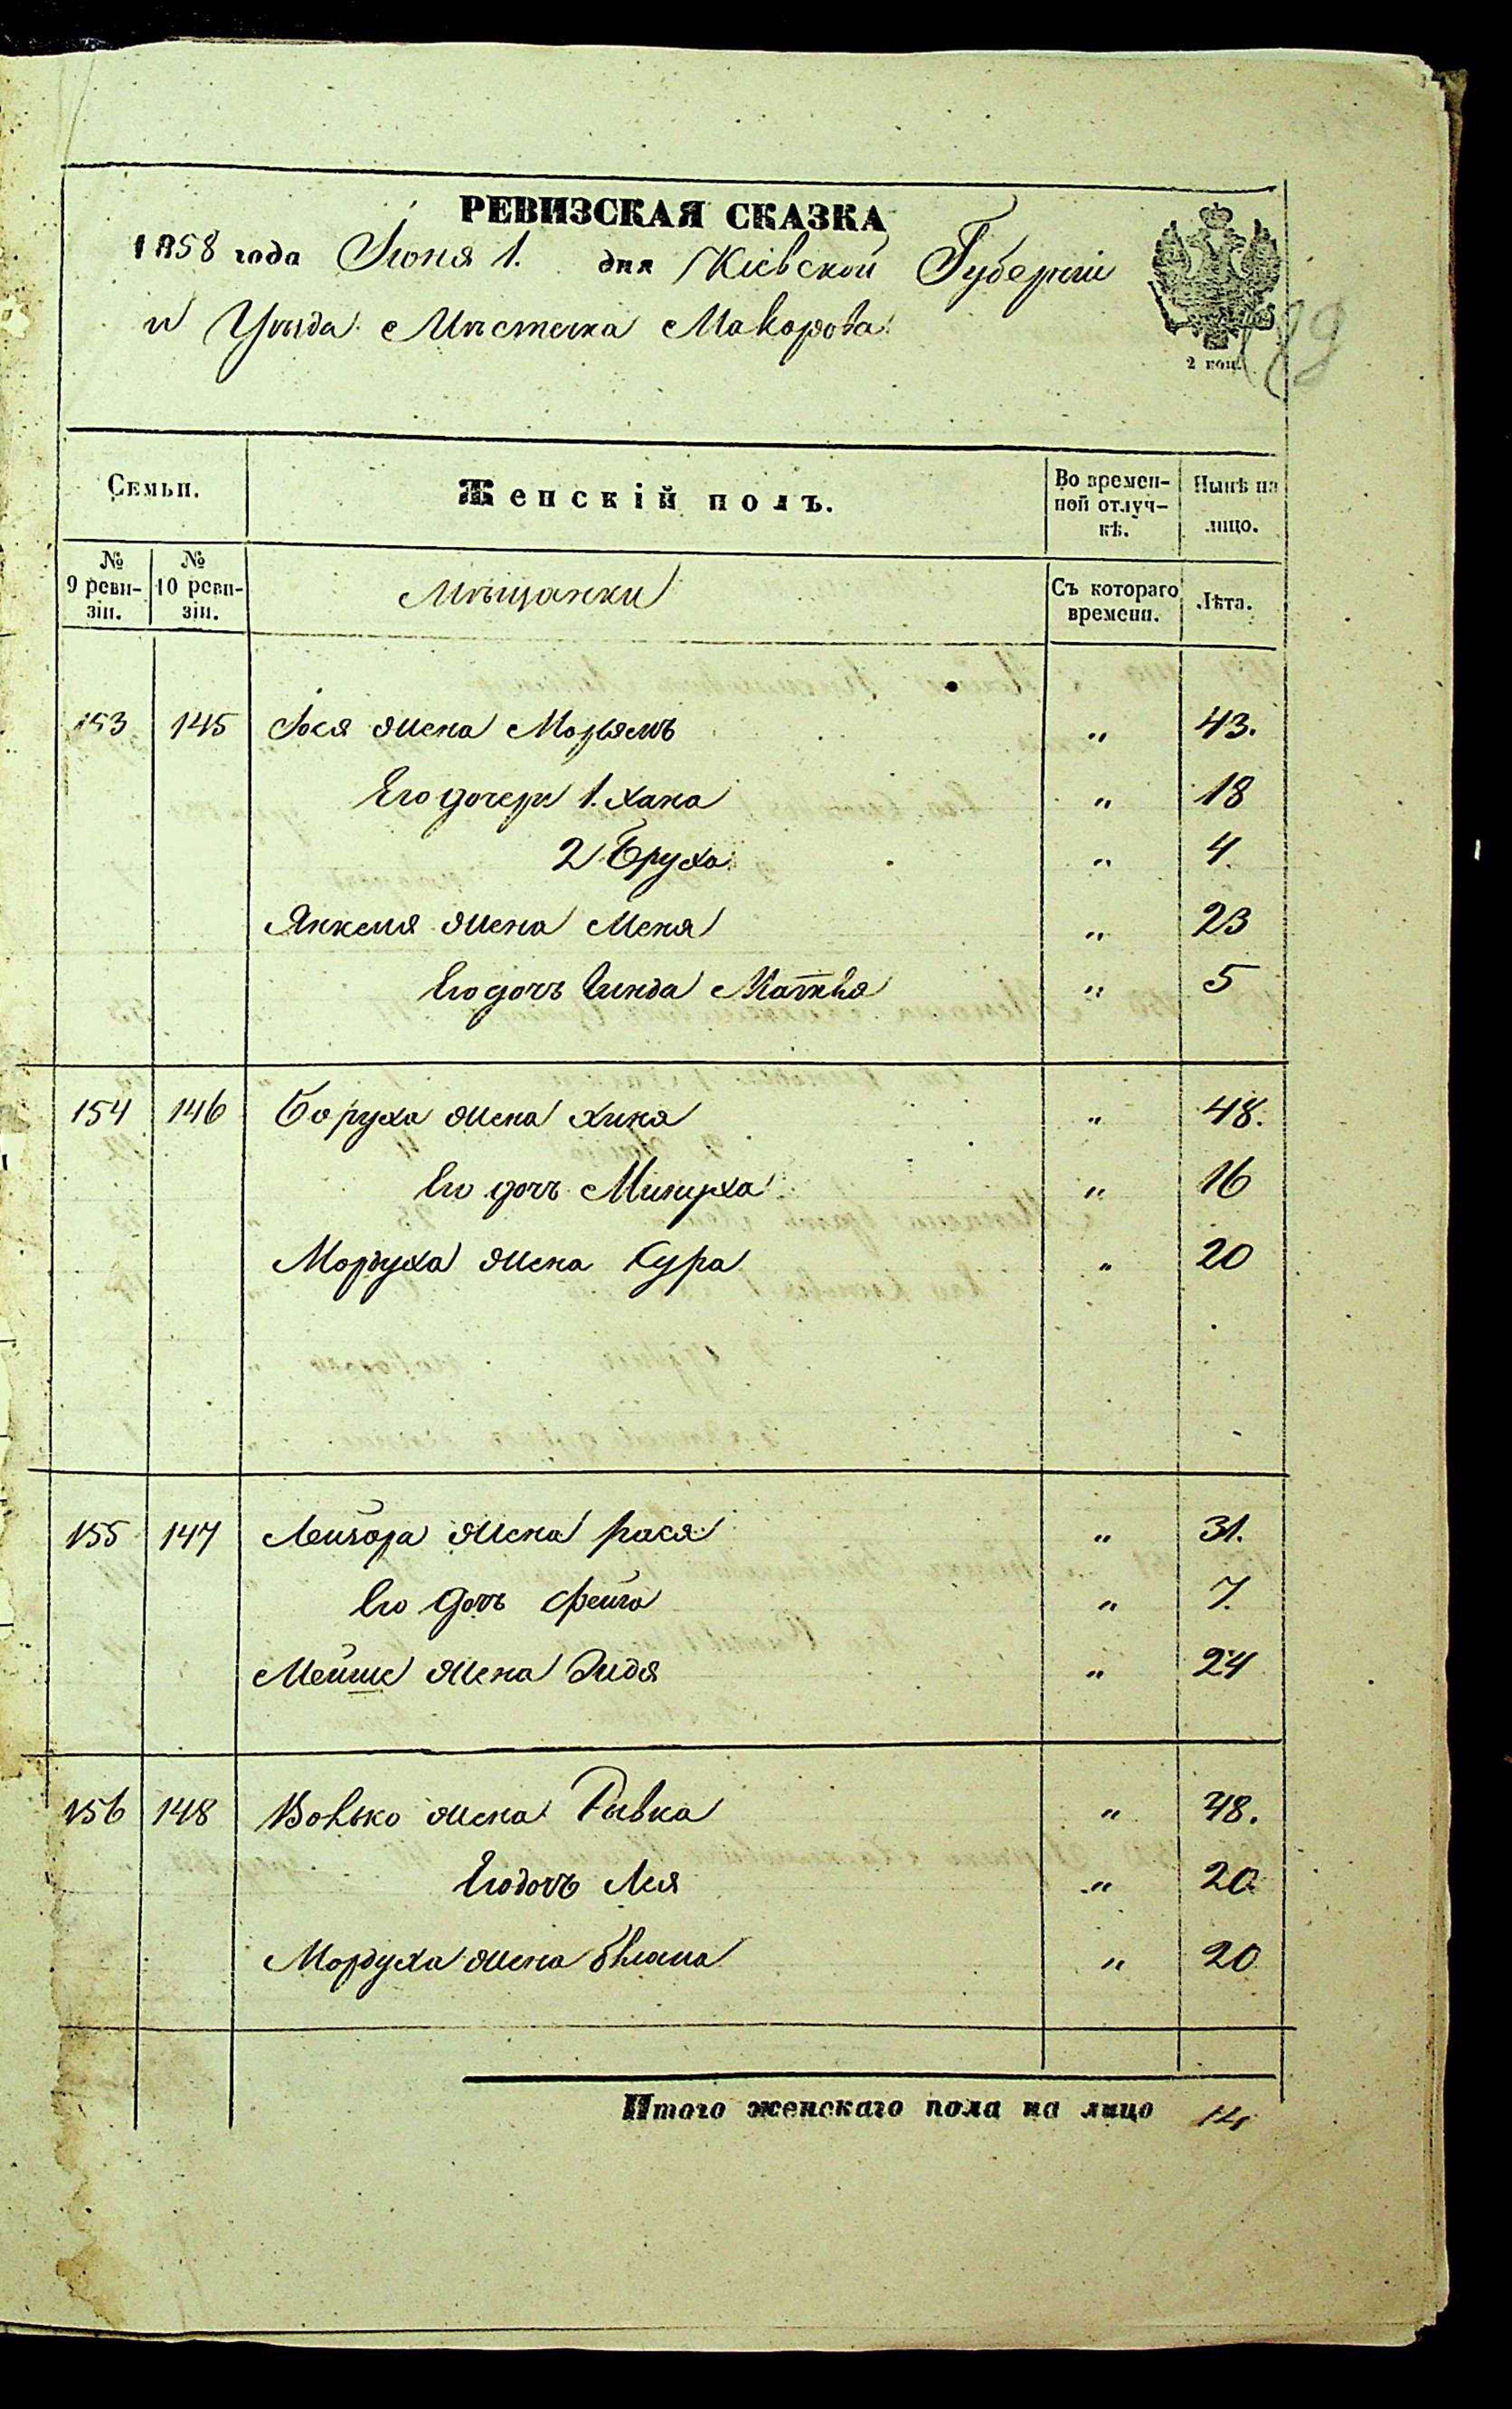 РЕВИЗСКАЯ СКАЗКА
1858 года Іюня 1. дня Кіевской Губерніи
и Уѣзда Мѣстечка Макорова
2 коп.
189
Семьи. Женскій полъ. Во временной отлучкѣ. Нынѣ на лицо.
№ 9 ревизіи. № 10 ревизіи. Мѣщанки Съ котораго времени. Лѣта.
153 145 Іося жена Марьямъ " 43.
Его дочери 1. Хана " 18
2 Бруха " 4
Янкеля жена Меня " 23
Его дочь " 5
154 146 Боруха жена Хиня " 48.
Его дочь Минуха " 16
Мордуха жена Сура " 20
155 147 Лейзора жена Рася " 31.
Его дочь Фейга " 7.
Мейше жена Эидя " 24
156 148 Волько жена Ривка " 48.
Его дочь Лея " 20
Мордуха жена " 20
Итого женскаго пола на лицо 14